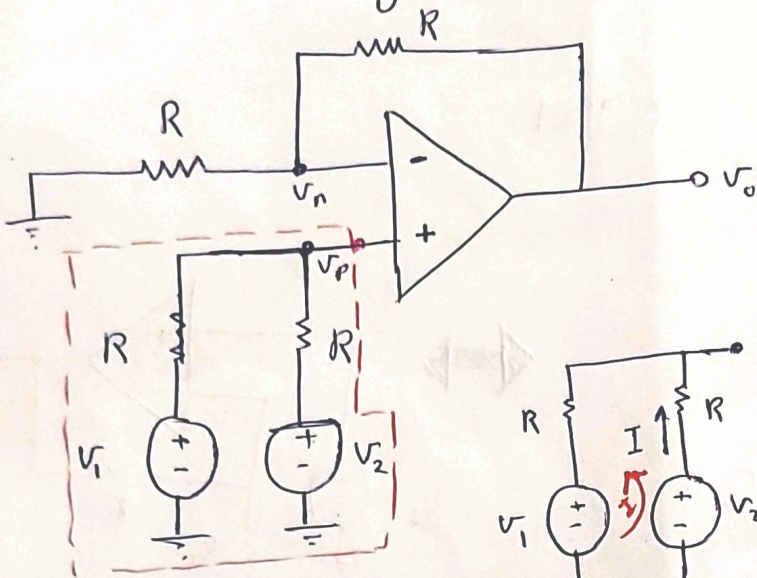 R
R
Vn
-
Vo
+
Vp
R
R
V1
+
-
+
-
V2
R
R
I
V1
+
-
+
-
V2